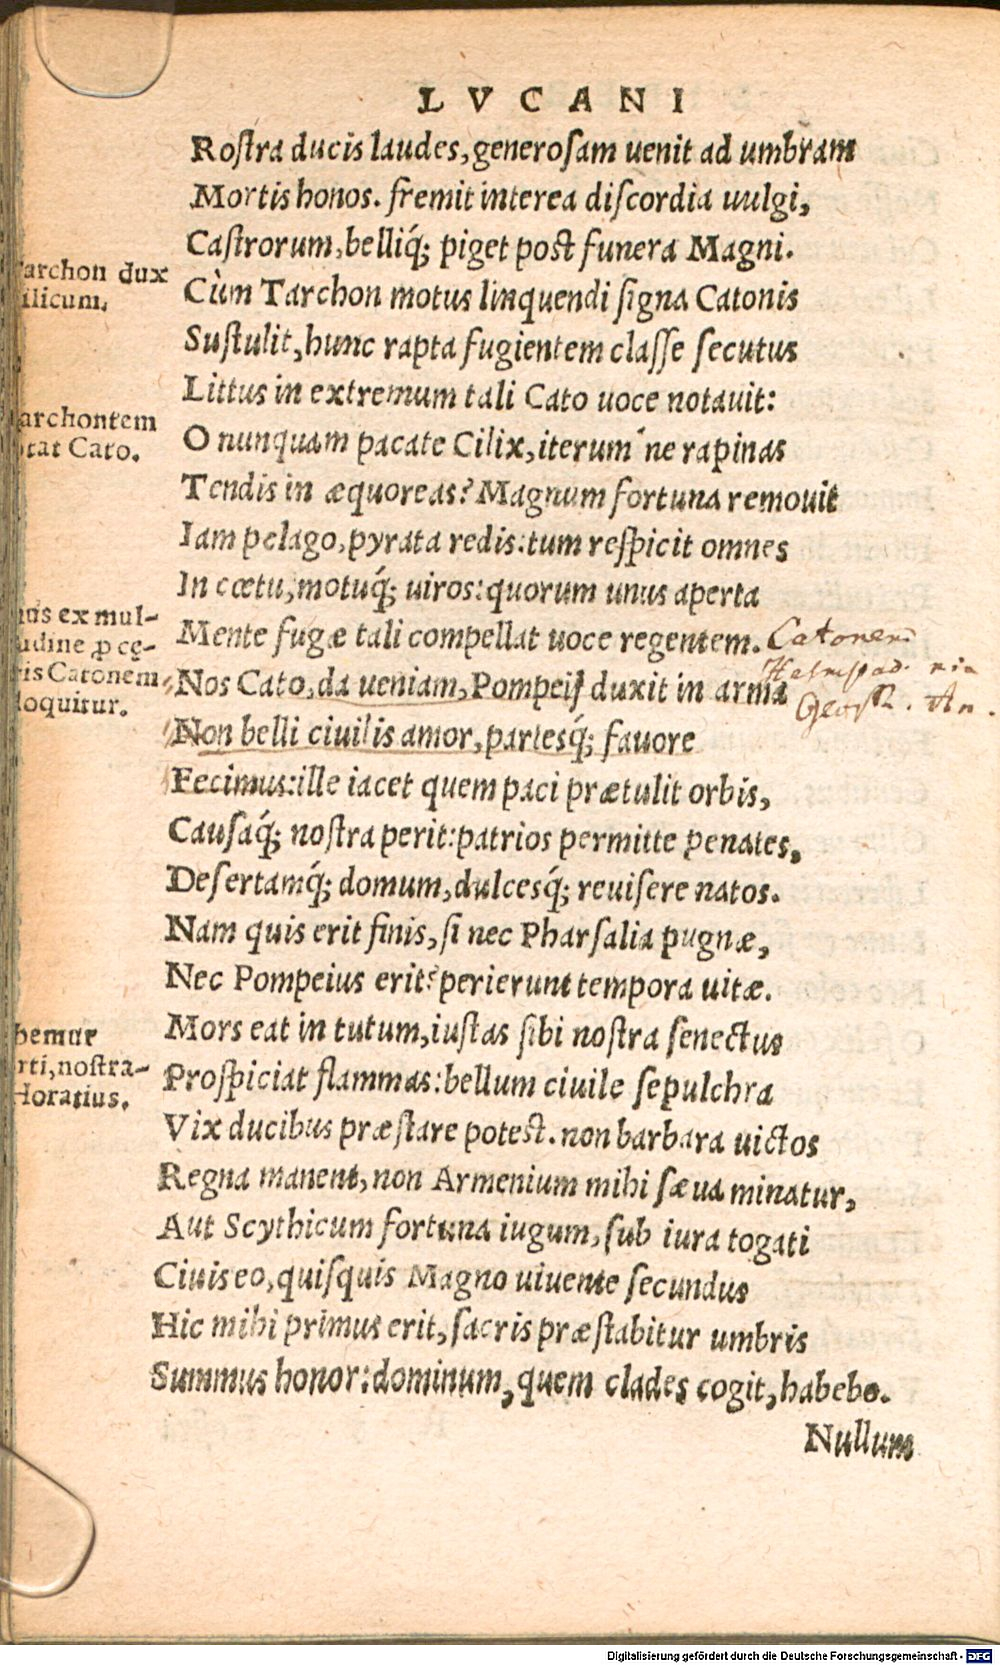 LVCANI
Roſtra ducis laudes, generoſam uenit ad umbram
Mortis honos. fremit interea diſcordia uulgi,
Caſtrorum, belliq́; piget poſt funera Magni.
Cùm Tarchon motus linquendi ſigna Catonis
Suſtulit, hunc rapta fugientem claſſe ſecutus
Littus in extremum tali Cato uoce notauit:
O nunquam pacate Cilix, iterum ne rapinas
Tendis in æquoreas? Magnum fortuna remouit
Iam pelago, pyrata redis: tum reſpicit omnes
In cœtu, motuq́; uiros: quorum unus aperta
Mente fugæ tali compellat uoce regentem.
Nos Cato, da ueniam, Pompeij duxit in arma
Non belli ciuilis amor, partesq́; fauore
Fecimus: ille iacet quem paci prætulit orbis,
Cauſaq́; noſtra perit: patrios permitte penates,
Deſertamq́; domum, dulcesq́; reuiſere natos.
Nam quis erit finis, ſi nec Pharſalia pugnæ,
Nec Pompeius erit? perierunt tempora uitæ.
Mors eat in tutum, iuſtas ſibi noſtra ſenectus
Proſpiciat flammas: bellum ciuile ſepulchra
Vix ducibus præſtare poteſt. non barbara uictos
Regna manent, non Armenium mihi ſæua minatur,
Aut Scythicum fortuna iugum, ſub iura togati
Ciuis eo, quiſquis Magno uiuente ſecundus
Hic mihi primus erit, ſacris præſtabitur umbris
Summus honor: dominum, quem clades cogit, habebo.
Nullum
archon dux
ilicum.
archontem
tat Cato.
ex mul-
udine ꝓ cę-
ris Catonem
loquitur.
bemur
rti, noſtra-
Horatius.
Catonem
Digitalisierung gefördert durch die Deutsche Forschungsgemeinschaft - DFG